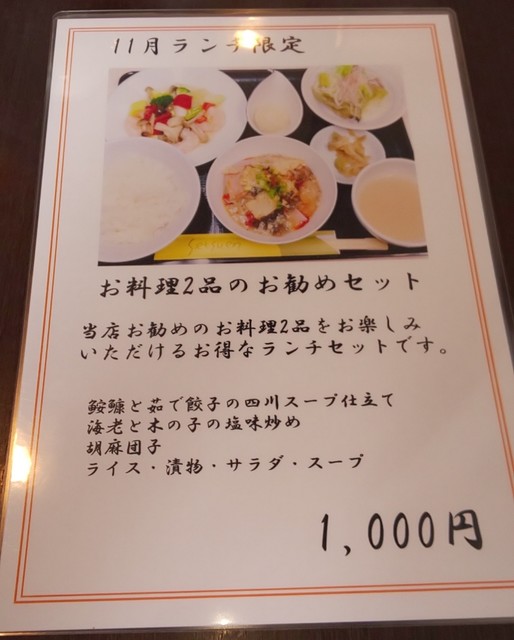 11月ランチ限定
お料理2品のお勧めセット
当店お勧めのお料理2品をお楽しみ
いただけるお得なランチセットです。
鮟鱇と茹で餃子の四川スープ仕立て
海老と木の子の塩味炒め
胡麻団子
ライス・漬物・サラダ・スープ
1,000円